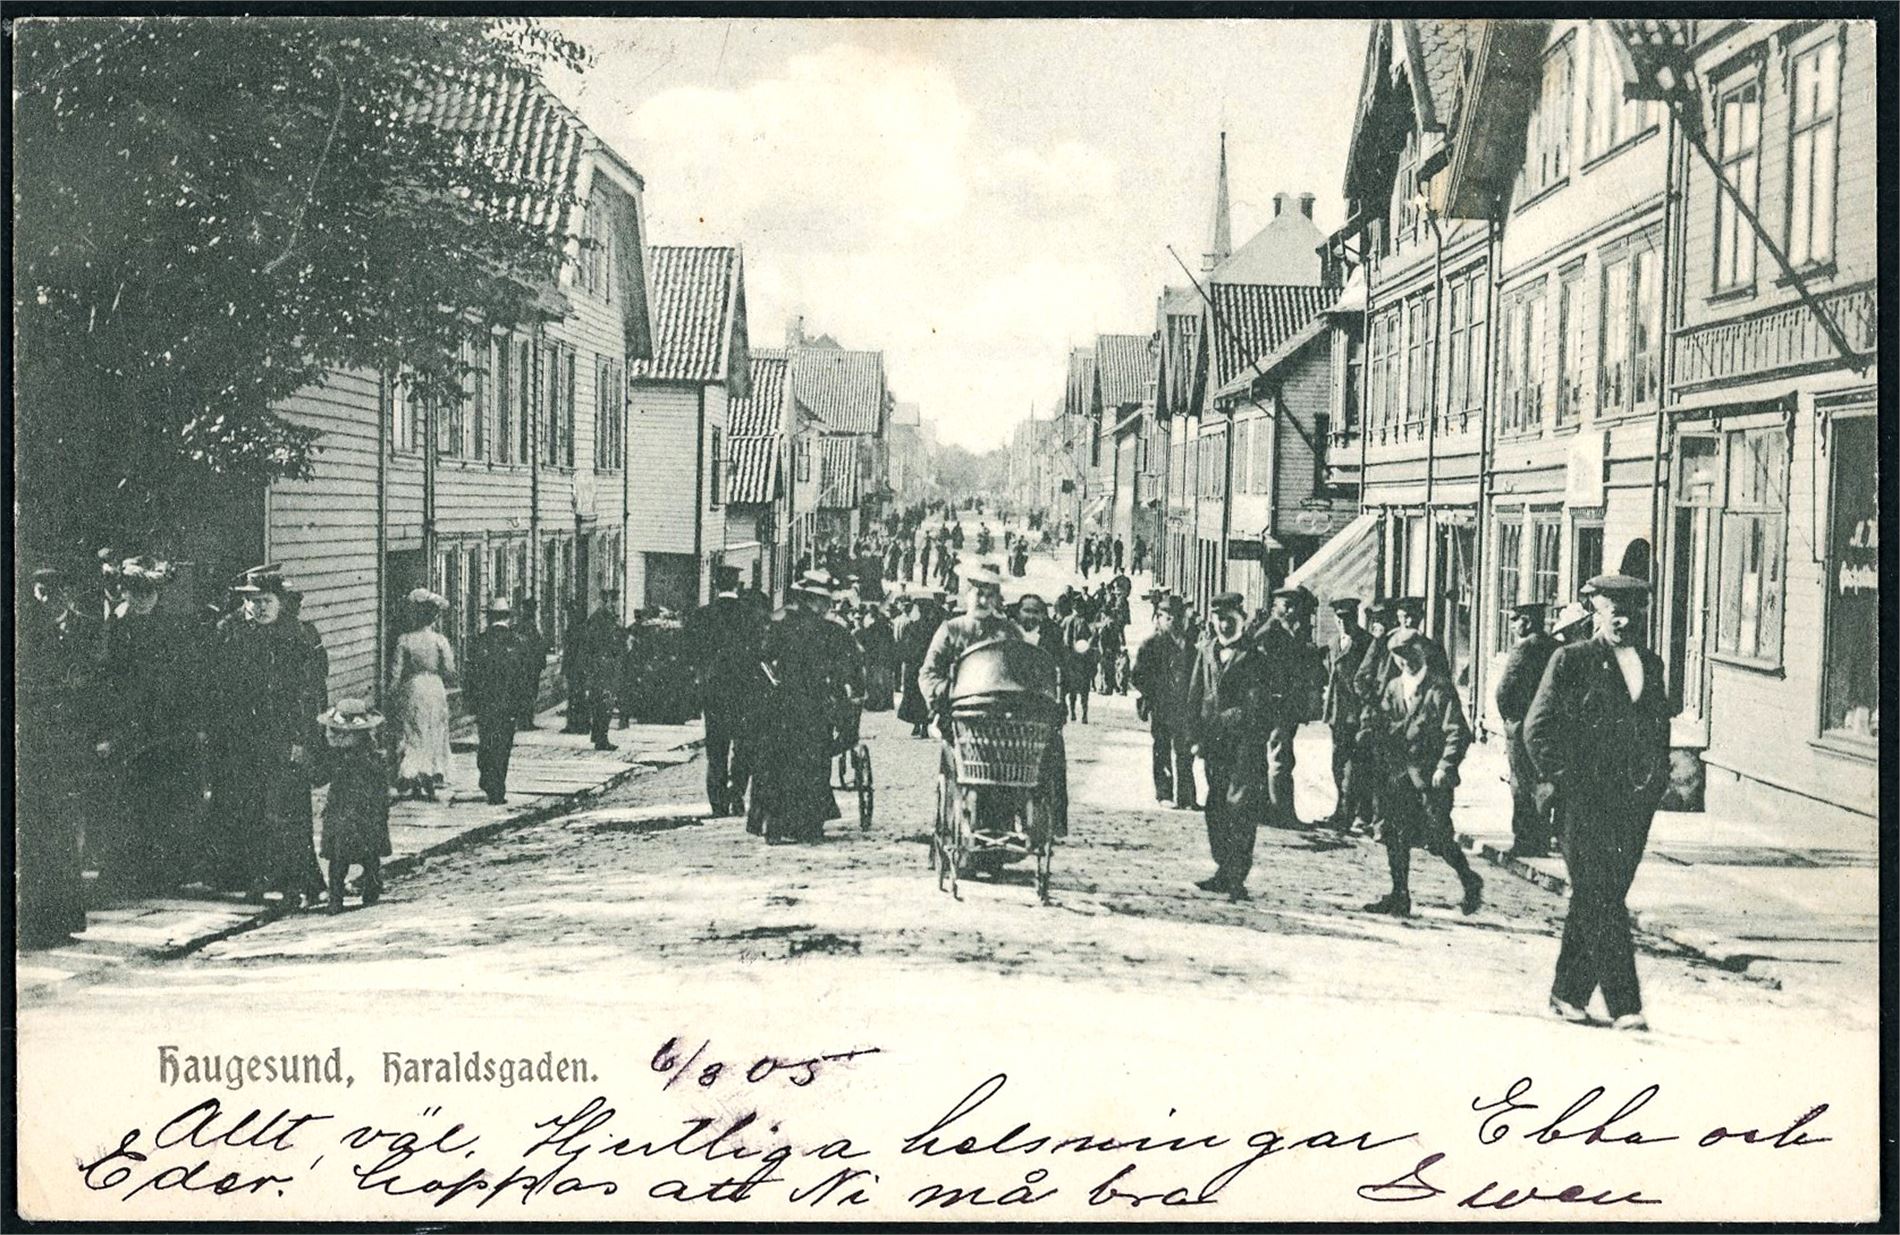 Haugesund, Haraldsgaden. 6/8 05
Allt väl. Hjertliga helsningar Ebba och
Eder. hoppas att Ni må bra Swen